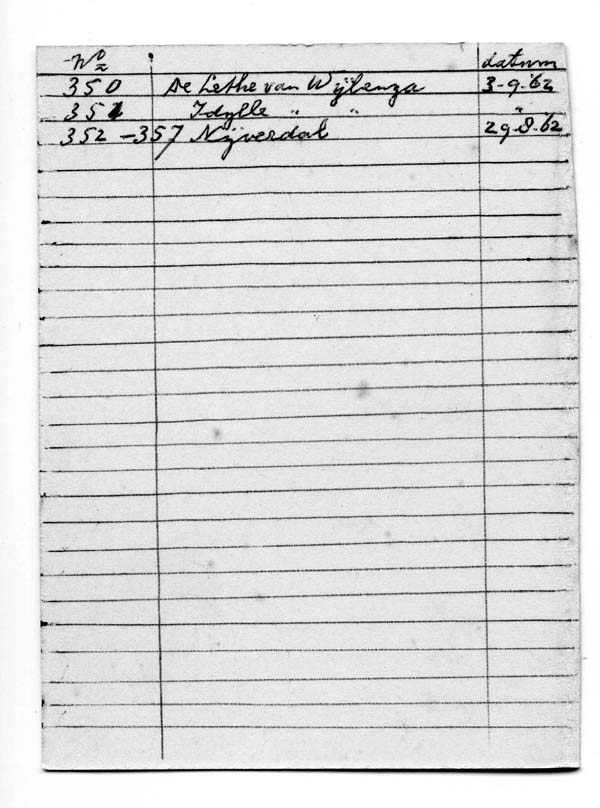 No datum
350 De Lethe van Wijlenza 3-9-'62
351 Idylle " " "
352-357 Nijverdal 29-8-62